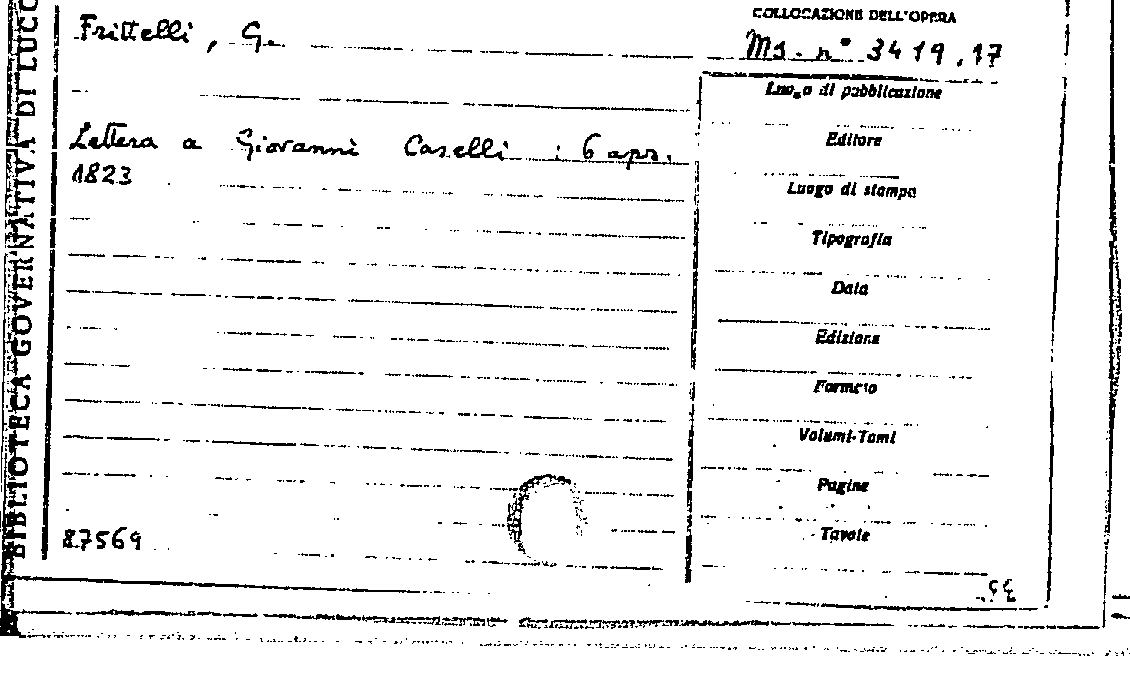 BIBLIOTECA GOVERNATIVA DI LUCC
Frittelli, G.
COLLOCAZIONE DELL'OPERA
Ms. n° 3419.17
Lettera a Giovanni Caselli : 6 apr.
1823
Luogo di pubblicazione
Editore
Luogo di stampa
Tipografia
Data
Edizione
Formato
Volumi-Tomi
Pagine
Tavole
87569